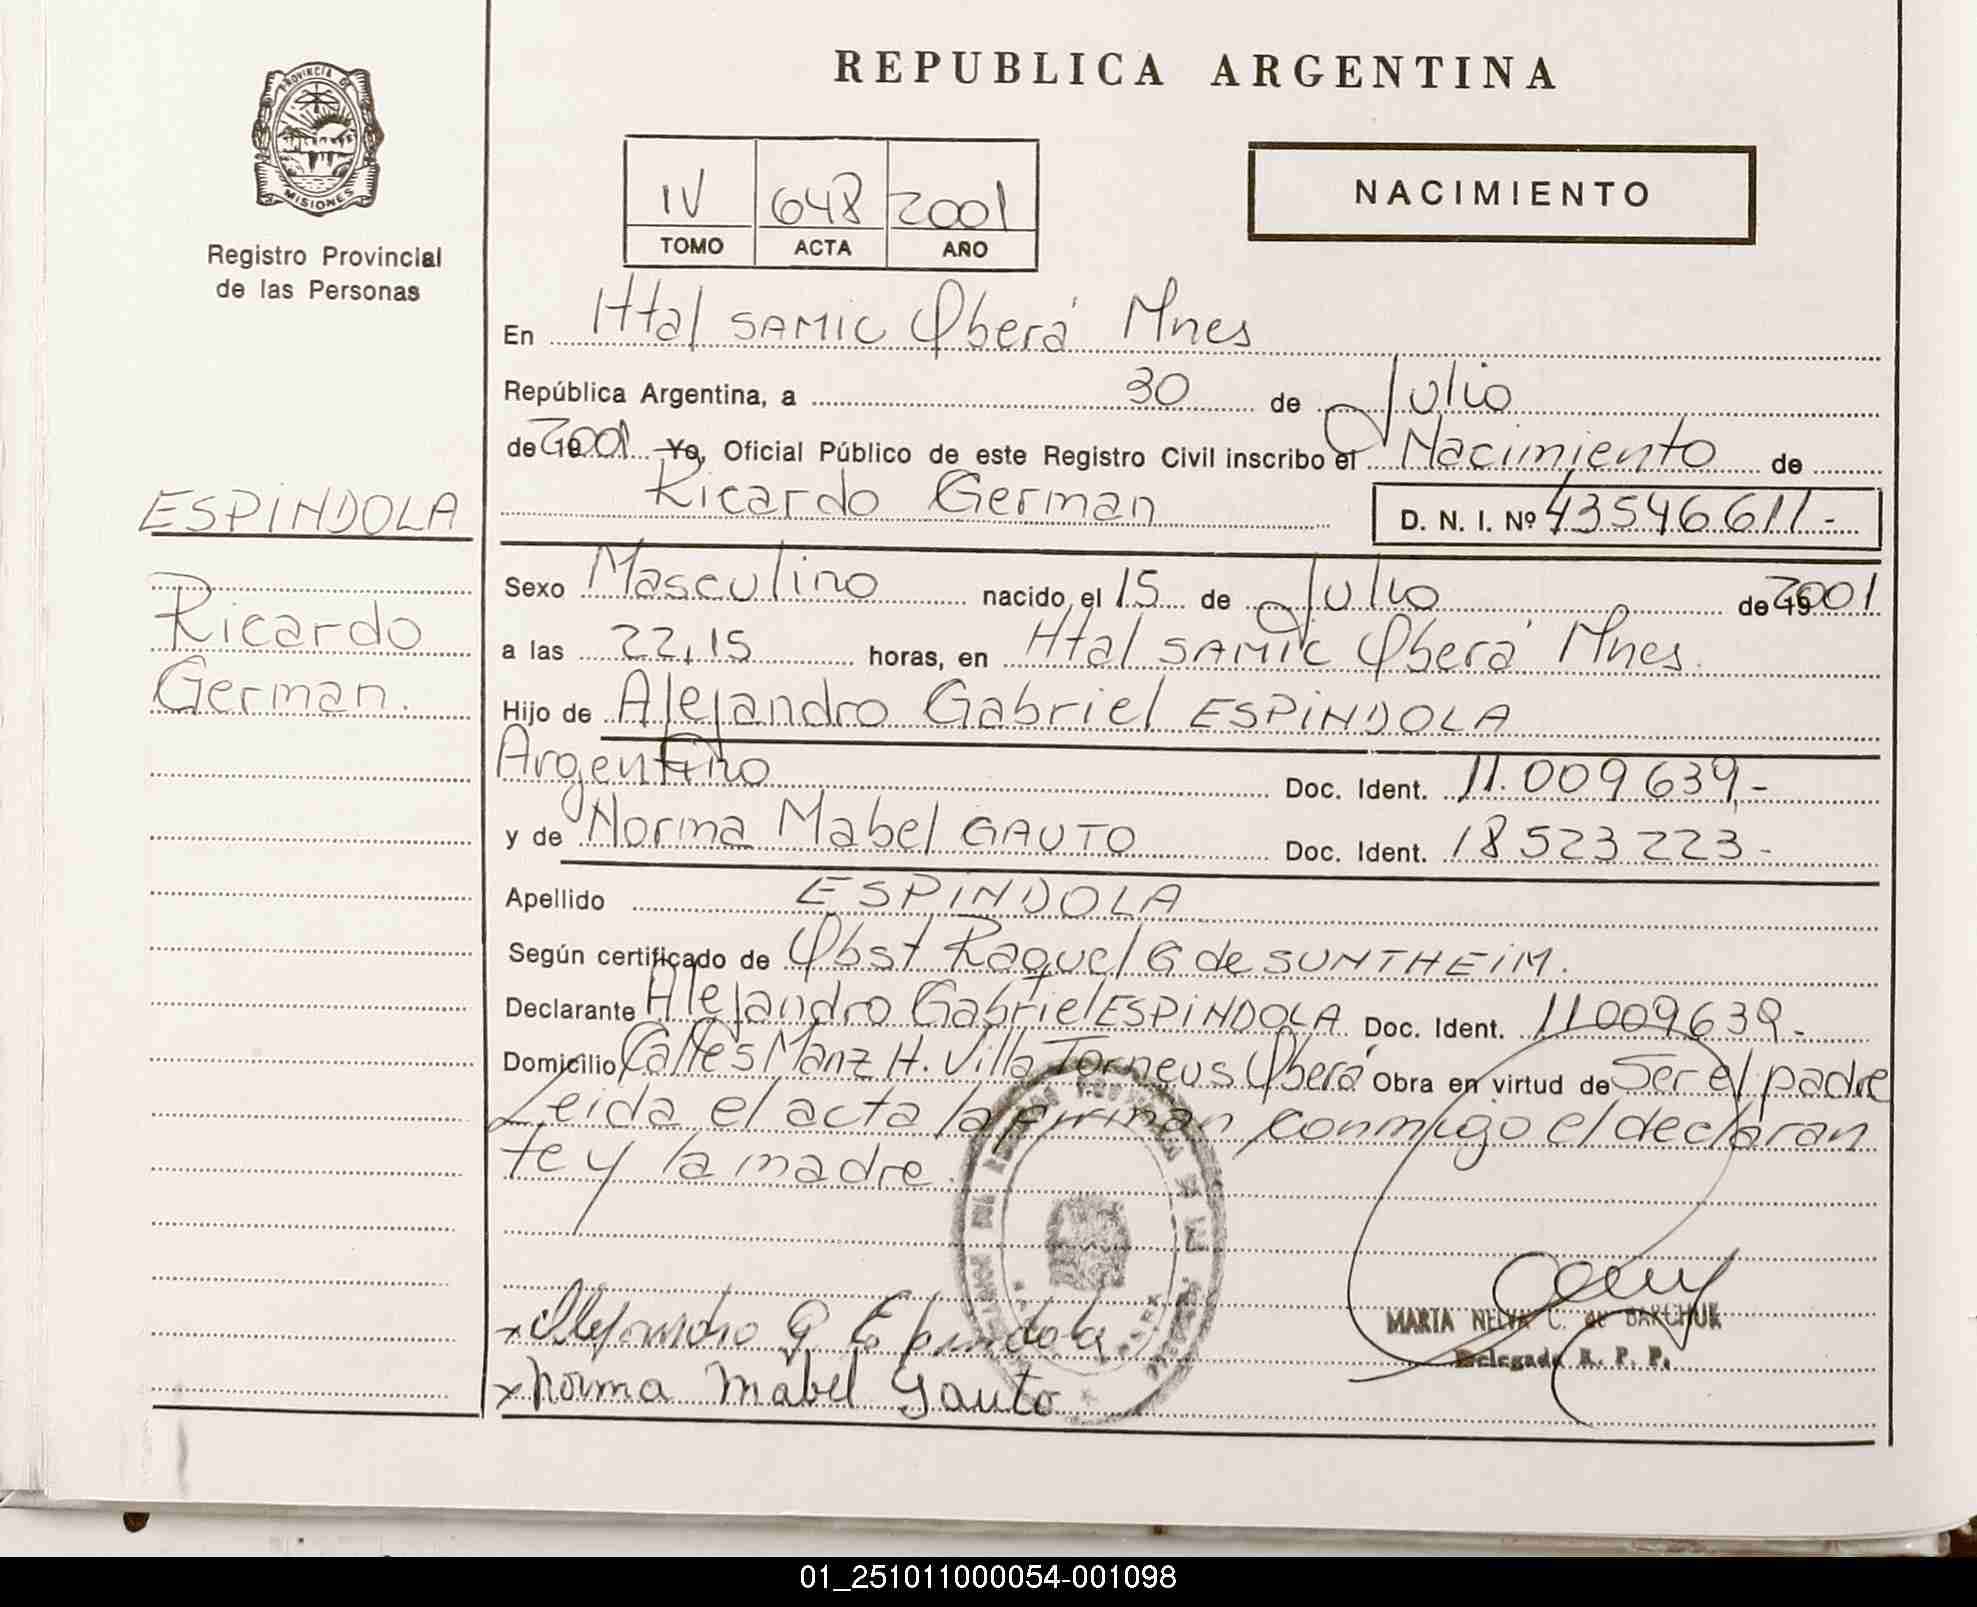 PROVINCIA DE
MISIONES
Registro Provincial
de las Personas
ESPINDOLA
Ricardo
German.
REPUBLICA ARGENTINA
IV 648 2001
TOMO ACTA AÑO
NACIMIENTO
En Htal SAMIC Oberá Mnes
República Argentina, a 30 de Julio
de 2001 Yo, Oficial Público de este Registro Civil inscribo el Nacimiento de
Ricardo German D. N. I. Nº 43546611.-
Sexo Masculino nacido el 15 de Julio de 2001
a las 22,15 horas, en Htal SAMIC Oberá Mnes.
Hijo de Alejandro Gabriel ESPINDOLA
Argentino Doc. Ident. 11.009639.-
y de Norma Mabel GAUTO Doc. Ident. 18523223-
Apellido ESPINDOLA
Según certificado de Obst Raquel G de SUNTHEIM.
Declarante Alejandro Gabriel ESPINDOLA Doc. Ident. 11009639-
Domicilio Manz H. Villa Torneus Oberá Obra en virtud de Ser el padre
Leida el acta la firman conmigo el declaran
te y la madre.
x Alejandro G Espindola
x Norma Mabel Gauto
MARTA NELVA C. de BAKCHUK
Delegada R. P. P.
01_251011000054-001098